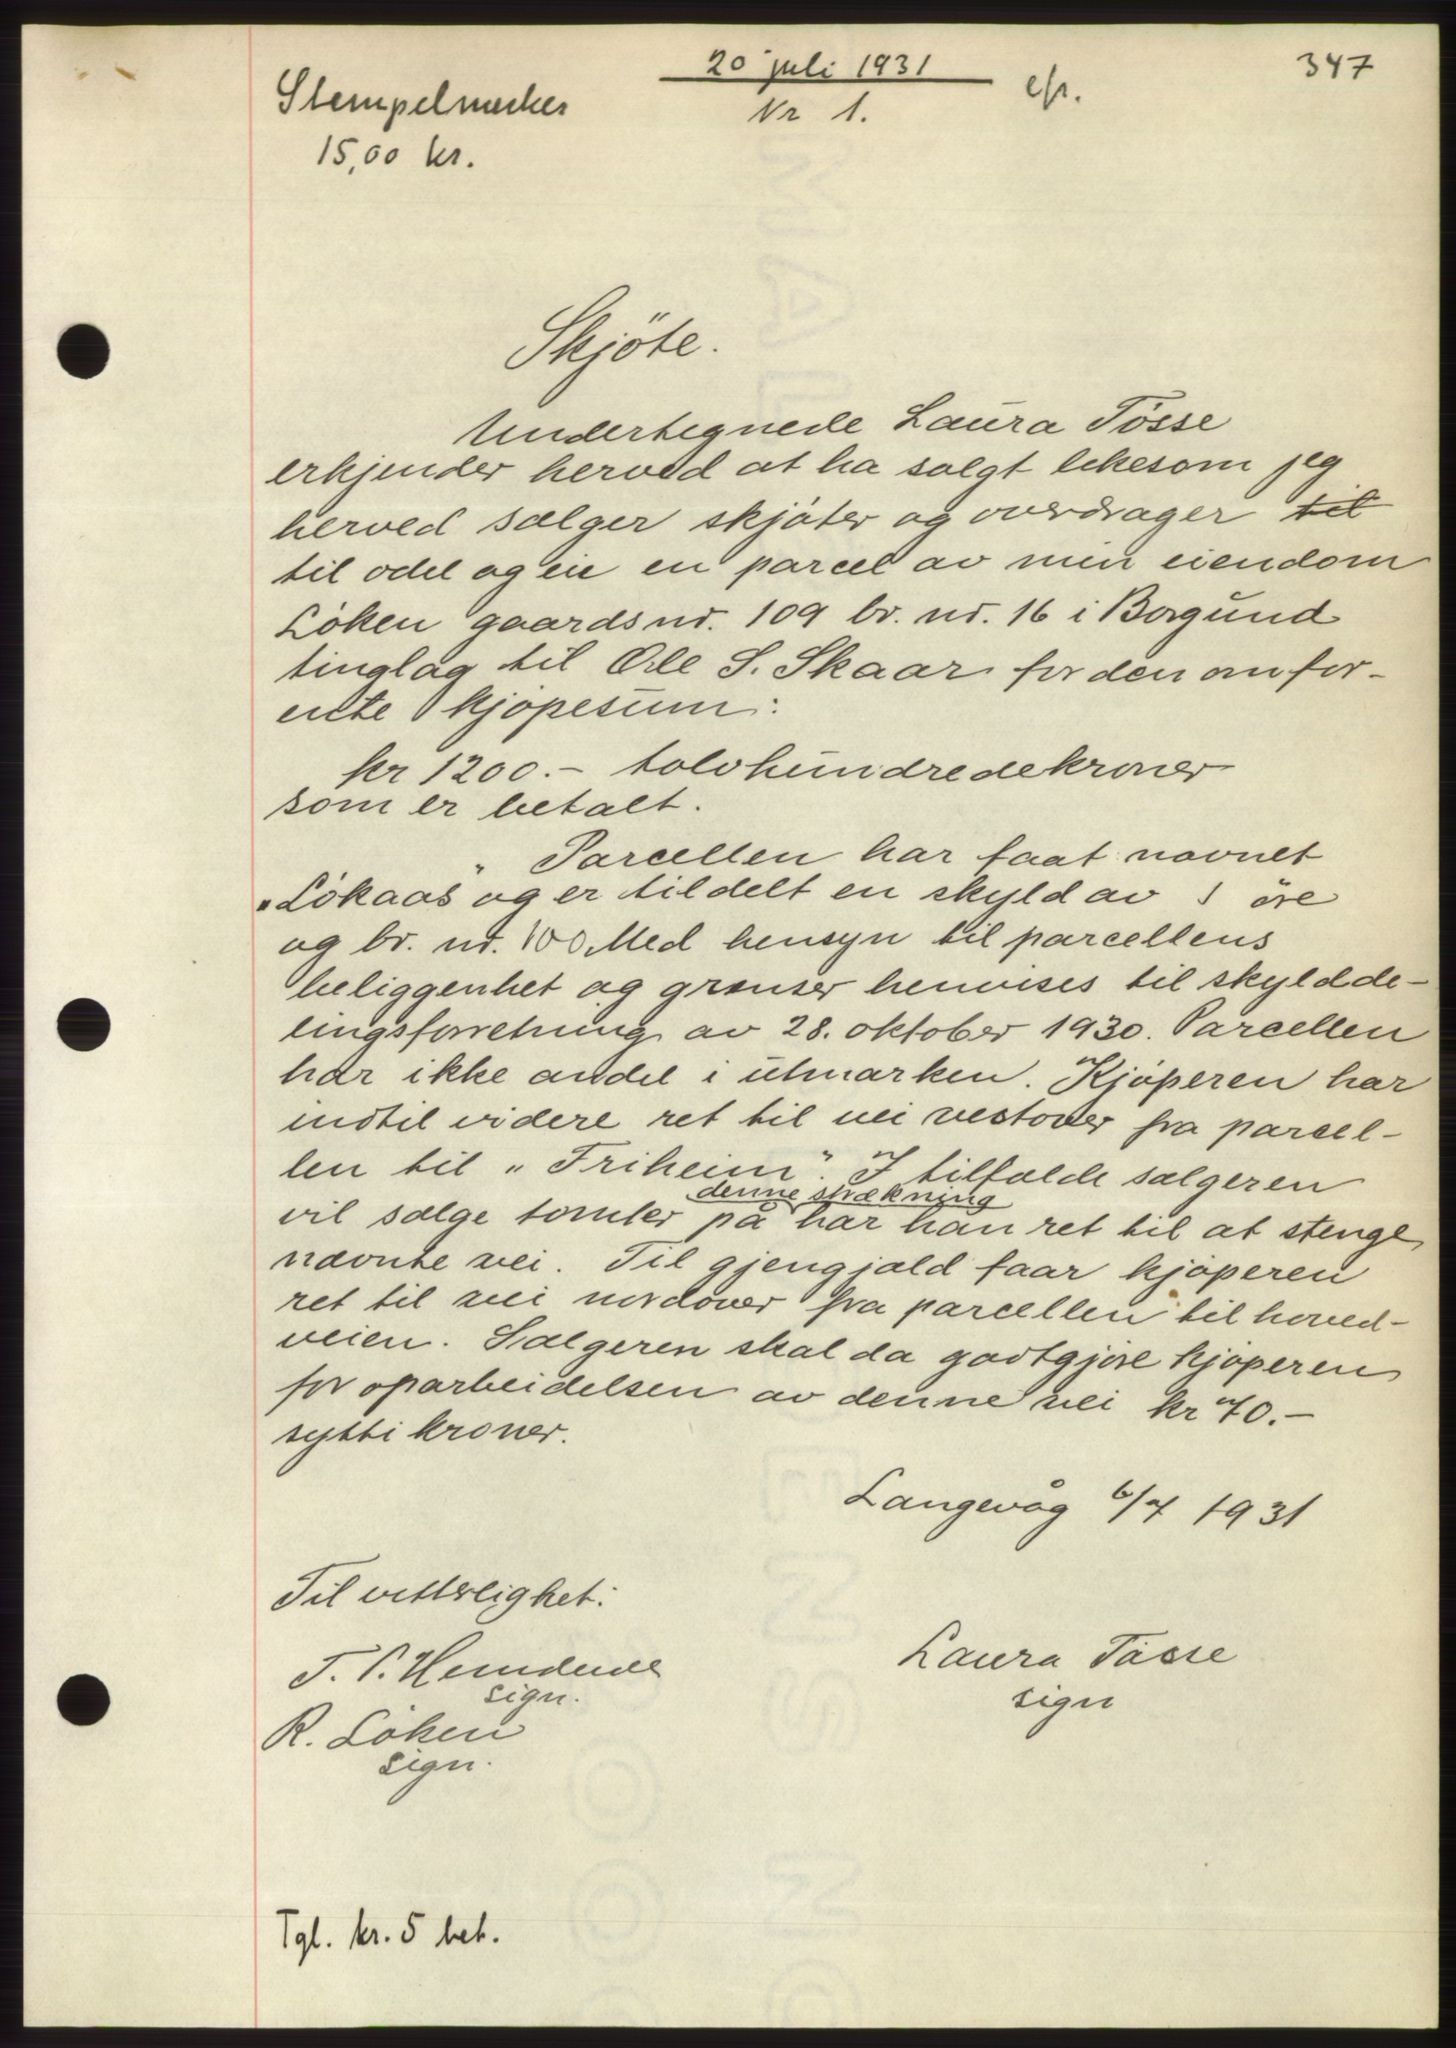 20 juli 1931
Nr 1.
347
Stempelmerker
15,00 kr.
Skjöte.
Undertegnede Laura Tösse
erkjender herved at ha solgt likesom jeg
herved sælger skjöter og overdrager til
til odel og eie en parcel av min eiendom
Löken gaardsnr. 109 br. nr. 16 i Borgund
tinglag til Ole S. Skaar for den omfor-
ente kjöpesum:
kr 1200.- tolvhundredekroner
som er betalt.
Parcellen har faat navnet
"Lökaas" og er tildelt en skyld av 1 öre
og br. nr. 100. Med hensyn til parcellens
beliggenhet og grenser henvises til skyldde-
lingsforretning av 28. oktober 1930. Parcellen
har ikke andel i utmarken. Kjöperen har
indtil videre ret til vei vestover fra parcel-
len til "Friheim". I tilfælde sælgeren
denne strækning
vil sælge tomter på har han ret til at stenge
nævnte vei. Til gjengjæld faar kjöperen
ret til vei nordover fra parcellen til hoved-
veien. Sælgeren skal da godtgjöre kjöperen
for oparbeidelsen av denne vei kr 70.-
sytti kroner.
Langevåg 6/7 1931
Til vitterlighet:
Laura Tösse
sign
sign.
R. Löken
sign.
Tgl. kr. 5 bet.